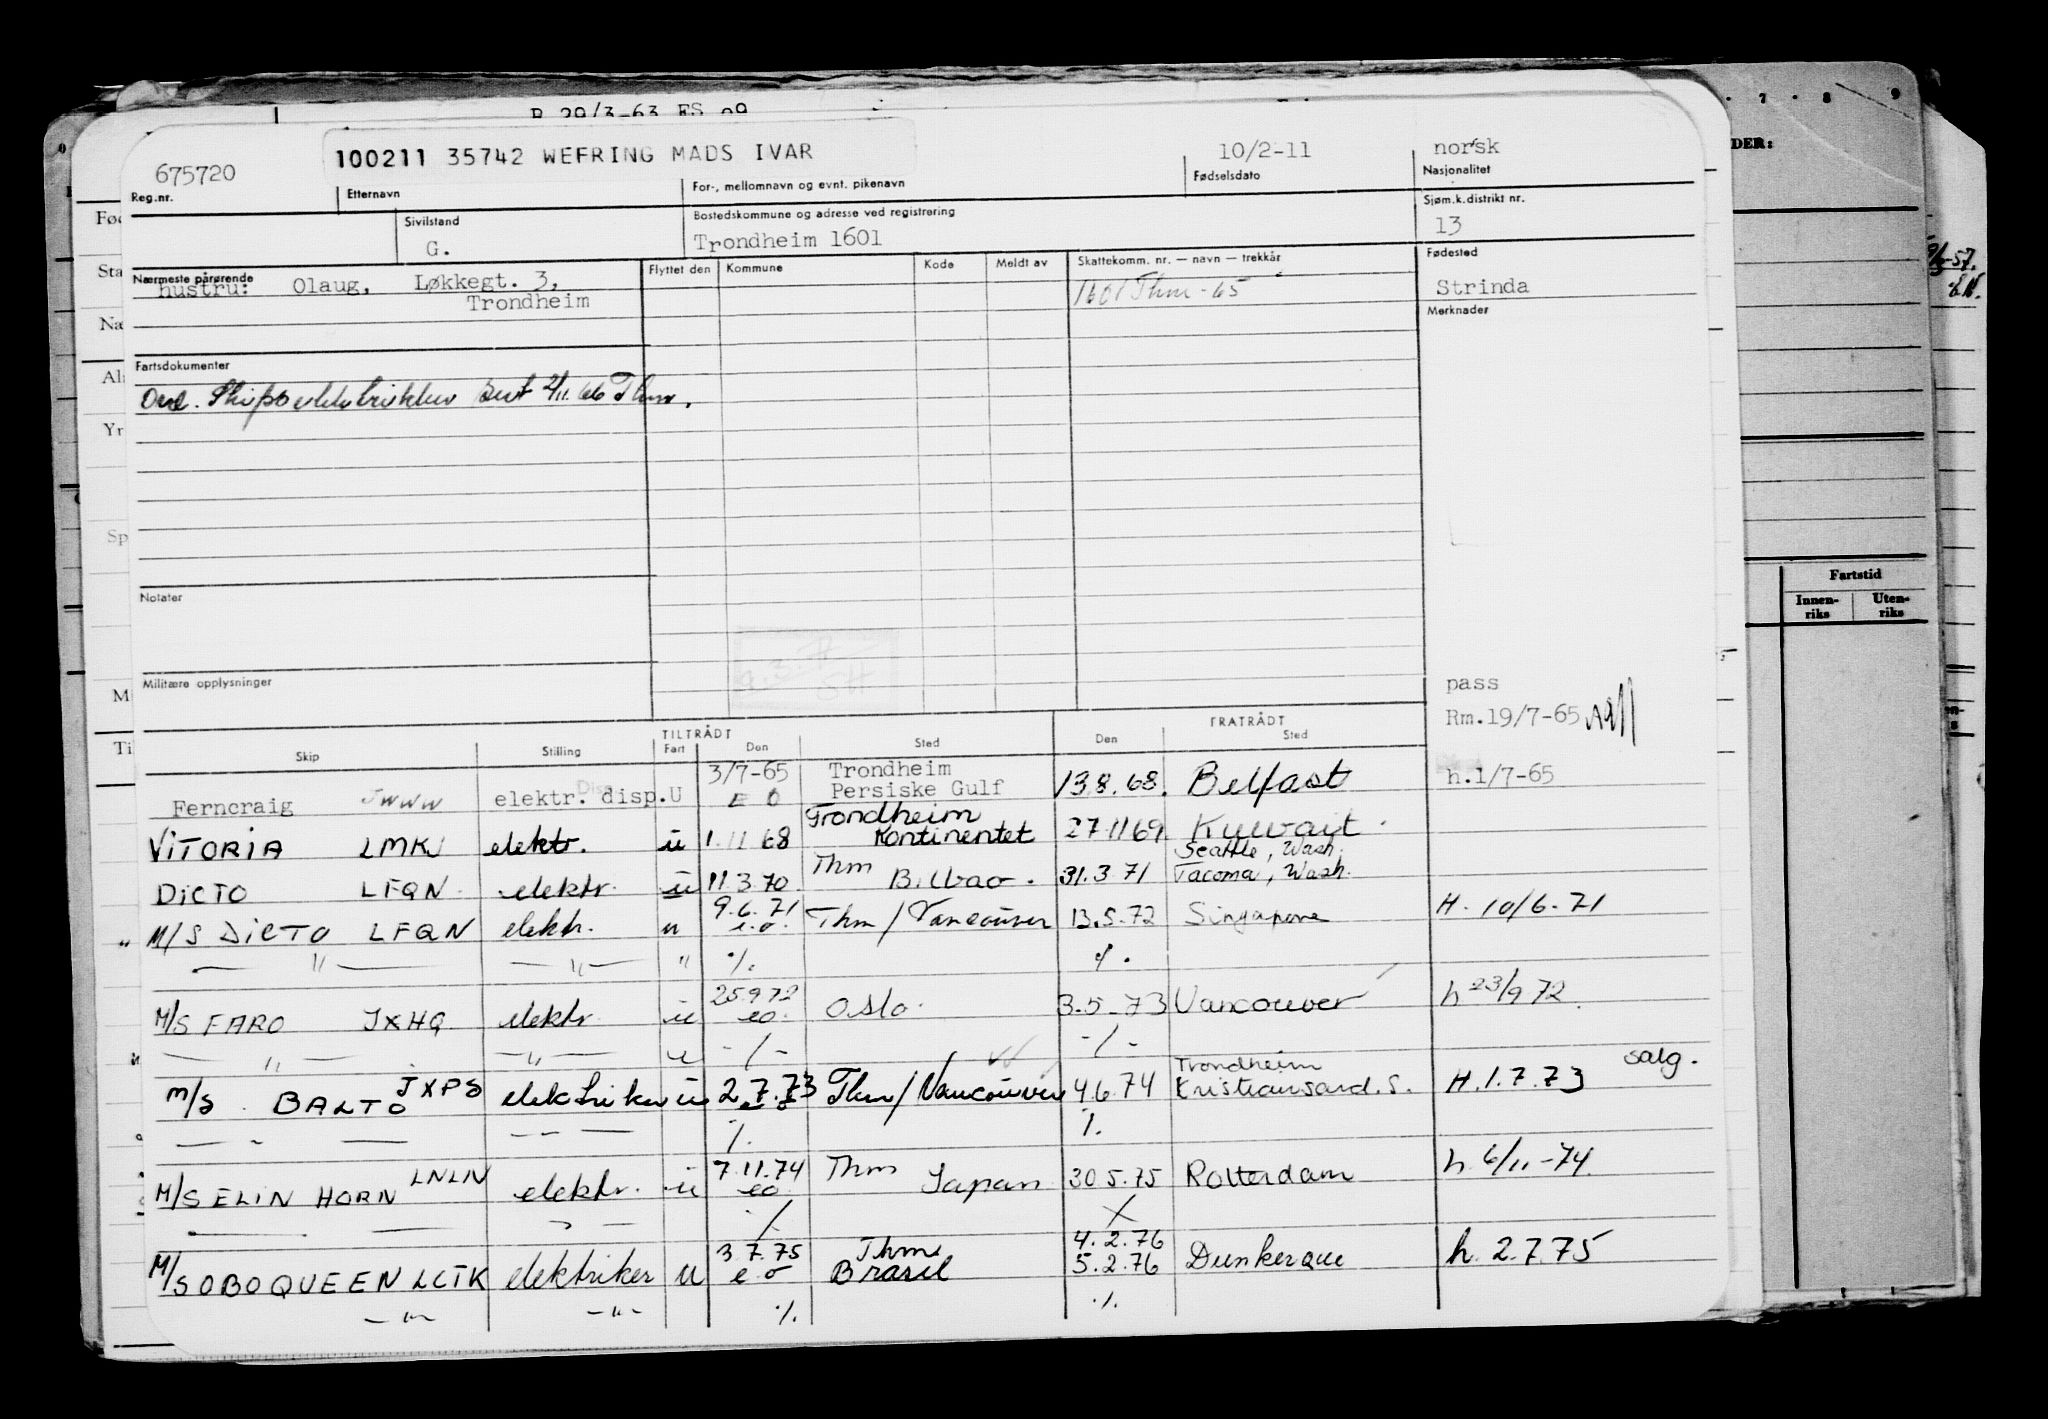 R 29/3-63 ES 09
100211 35742 WEFRING MADS IVAR
675720
10/2-11
norsk
Reg.nr.
Etternavn
For-, mellomnavn og evnt. pikenavn
Fødselsdato
Nasjonalitet
Sivilstand
Bostedskommune og adresse ved registrering
Sjøm.k.distrikt nr.
G.
Trondheim 1601
13
Nærmeste pårørende
Flyttet den
Kommune
Kode
Meldt av
Skattekomm. nr. — navn — trekkår
Fødested
hustru: Olaug, Løkkegt. 3,
Trondheim
1601 Thm - 65
Strinda
Merknader
Fartsdokumenter
2/11.66 Thm.
Notater
Militære opplysninger
pass
Rm.19/7-65
TILTRÅDT
FRATRÅDT
Skip
Stilling
Fart
Den
Sted
Den
Sted
3/7-65 Trondheim
Ferncraig JWWW elektr. disp.U E O Persiske Gulf 13.8.68. Belfast h.1/7-65
Trondheim
VITORIA LMKJ elektr. u 1.11 68 Kontinentet 27 11 69 Kuwait.
Seattle, Wash.
DICTO LFQN. elektr. u 11 3 70 Thm Bilbao. 31.3.71 Tacoma, Wash.
9.6.71
" M/S DICTO LFQN elektr. u e.o. Thm / Vancouver 13.5.72 Singapore H. 10/6-71
— " — — " — " %. %.
25 9 72
M/S FARO JXHQ elektr. u eo. Oslo. 3.5.73 Vancouver h 23/9 72.
— " — — " — u - / - - / -
Trondheim salg.
M/S BALTO JXPS elektriker u 2.7.73 e o Thm / Vancouver 4.6.74 Kristiansand.S. H.1.7.73
— " — — - — %. %.
7.11.74
M/S ELIN HORN LNLN elektr. u eo. Thm Japan 30 5.75 Rotterdam h. 6/11-74
3.7.75 Thm 4.2.76
M/S OBO QUEEN LCTK elektriker u e o Brasil 5.2.76 Dunkerque h. 2.7.75
— " — — " — %. %.
DER:
Fartstid
Innen-
riks
Uten-
riks